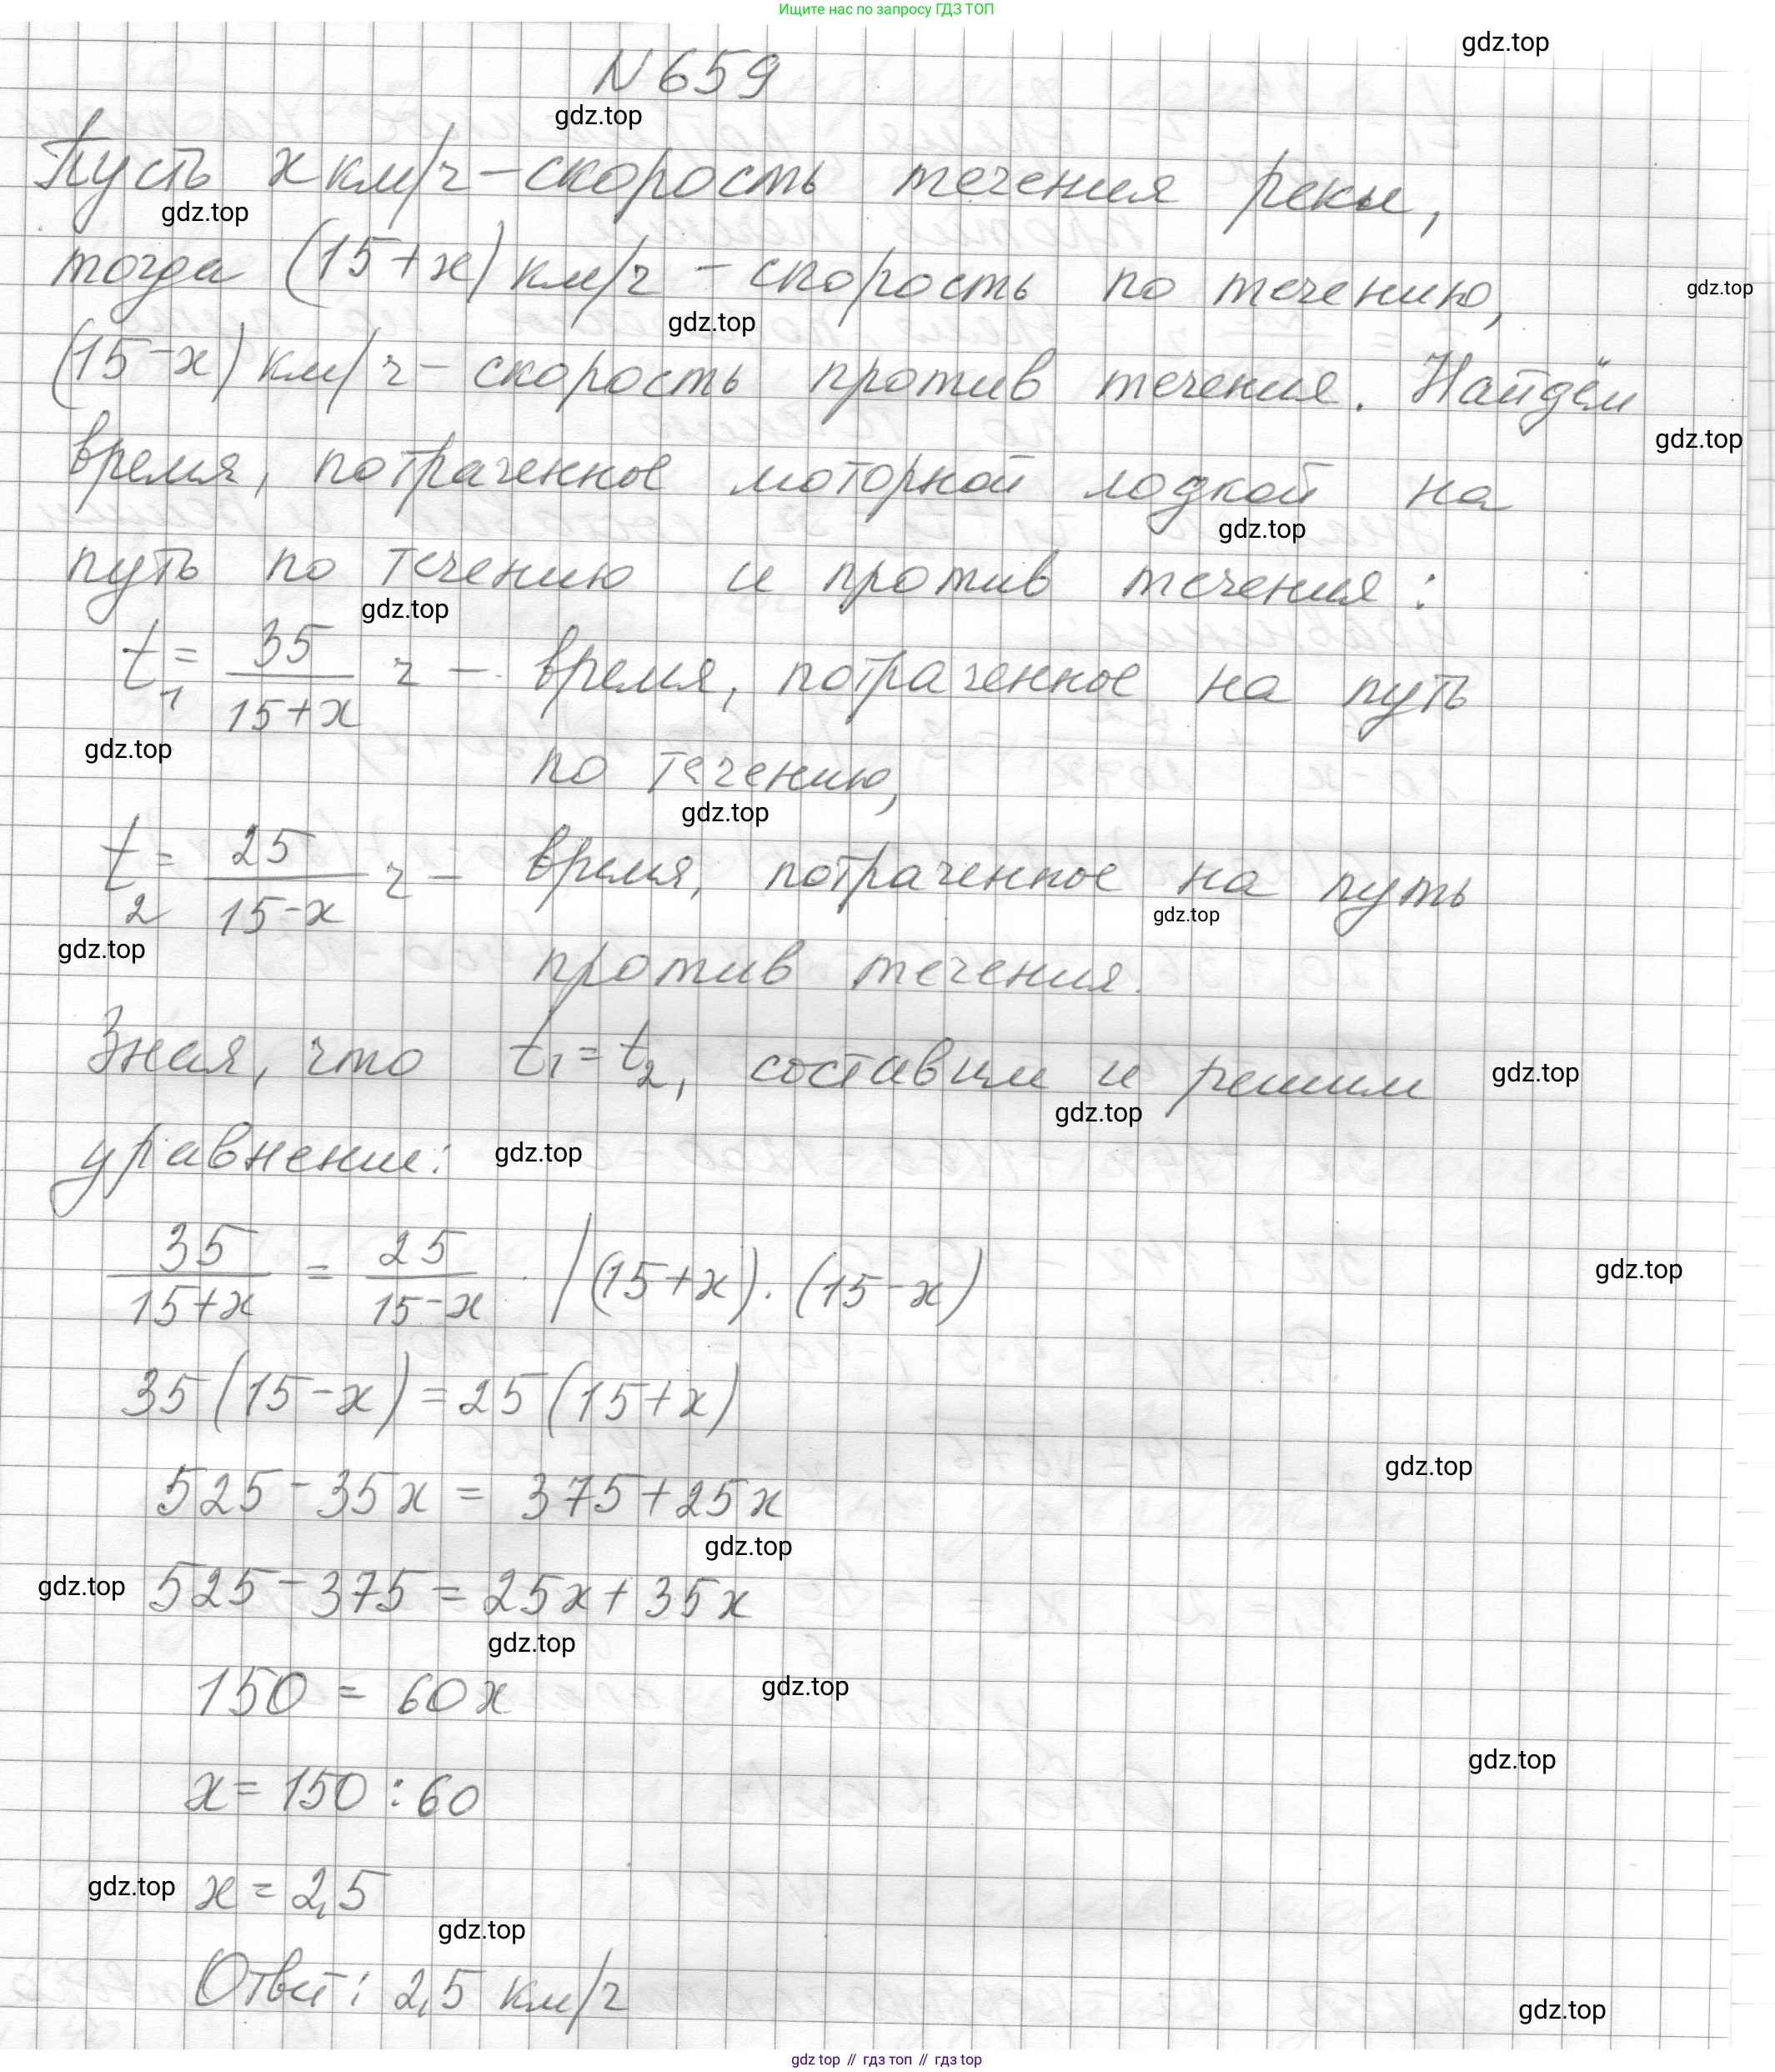 Ищите нас по запросу ГДЗ ТОП
gdz.top
N 659
gdz.top
Пусть x км/ч – скорость течения реки,
gdz.top
тогда (15+x) км/ч – скорость по течению,
gdz.top
gdz.top
(15-x) км/ч – скорость против течения. Найдём
gdz.top
время, потраченное моторной лодкой на
gdz.top
путь по течению и против течения:
gdz.top
t₁ = 35/(15+x) ч – время, потраченное на путь
gdz.top
по течению,
gdz.top
t₂ = 25/(15-x) ч – время, потраченное на путь
gdz.top
gdz.top
против течения.
Зная, что t₁ = t₂, составим и решим
gdz.top
gdz.top
уравнение:
gdz.top
35/(15+x) = 25/(15-x) | (15+x)·(15-x)
gdz.top
35(15-x) = 25(15+x)
gdz.top
525-35x = 375+25x
gdz.top
gdz.top
525-375 = 25x+35x
gdz.top
150 = 60x
gdz.top
gdz.top
x = 150:60
gdz.top
x = 2,5
gdz.top
Ответ: 2,5 км/ч
gdz.top
gdz top // гдз топ // гдз top